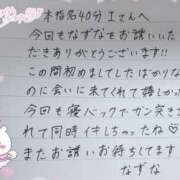 本指名40分 Iさんへ
今回もなずなをお誘いいた
だきありがとうございます!!
この間初めましてしたばかりな
のに会いに来てくれて嬉しかった
今回も寝バックでガン突きさ
れて同時イキしちゃったね♡
またお誘いお待ちしてます
なずな